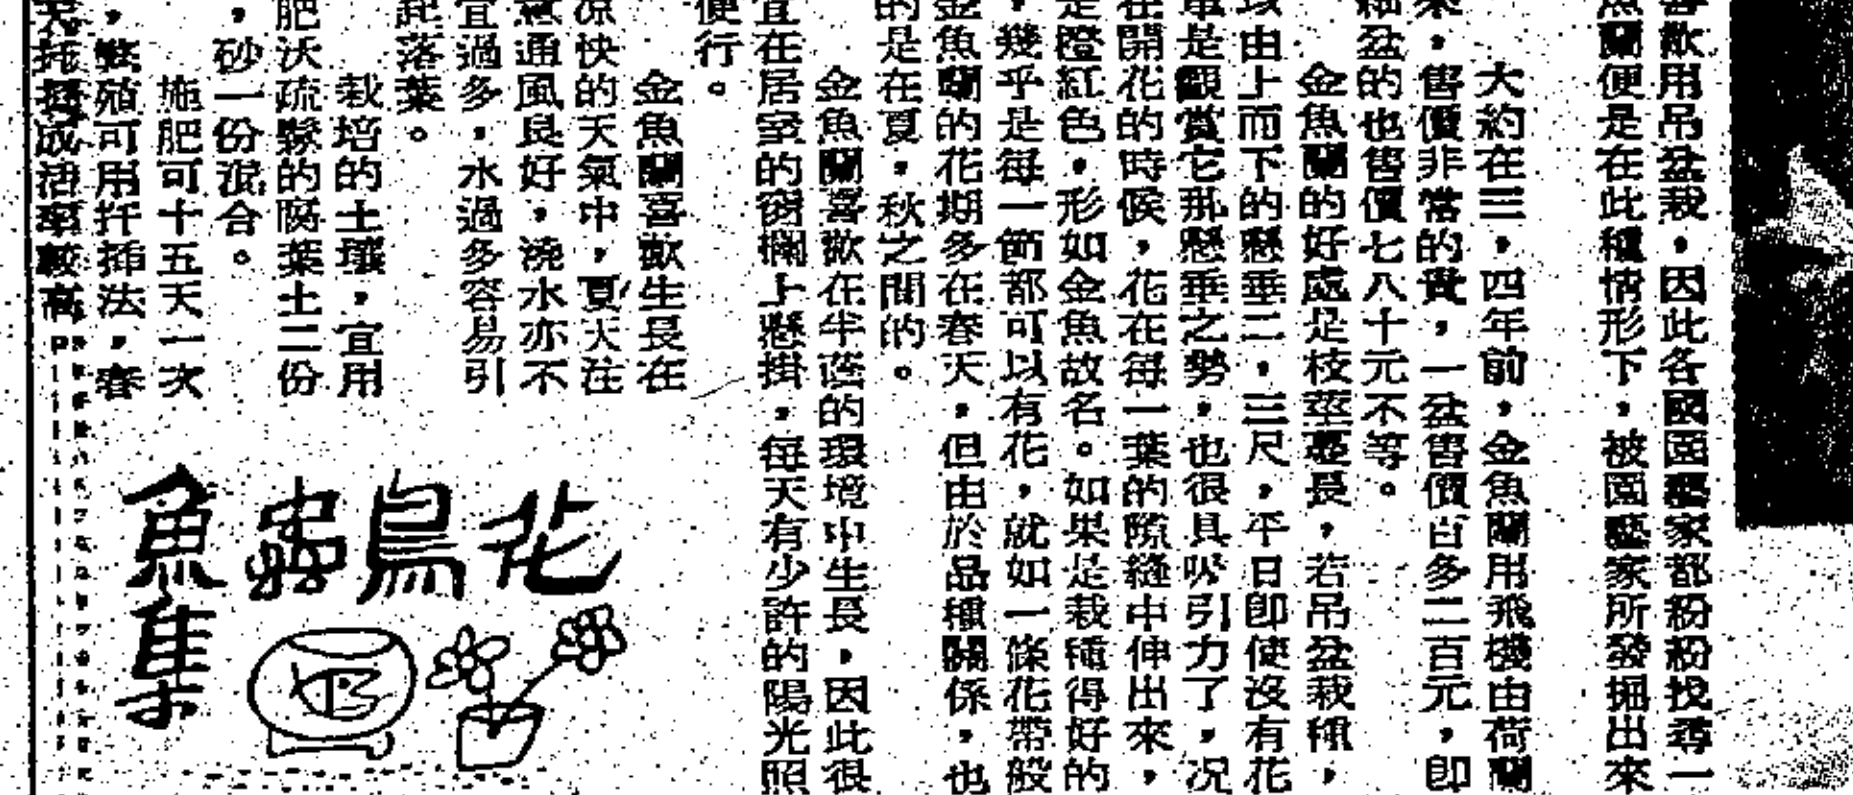 喜歡用吊盆栽，因此各國園藝家都紛紛找尋一
魚蘭便是在此種情形下，被園藝家所發掘出來
大約在三，四年前，金魚蘭用飛機由荷蘭
來，售價非常的貴，一盆售價百多二百元，即
細盆的也售價七八十元不等。
金魚蘭的好處是枝莖蔓長，若吊盆栽種，
以由上而下的懸垂二，三尺，平日即使沒有花
單是觀賞它那懸垂之勢，也很具吸引力了，况
在開花的時候，花在每一葉的隙縫中伸出來，
是橙紅色，形如金魚故名。如果是栽種得好的
，幾乎是每一節都可以有花，就如一條花帶般
金魚蘭的花期多在春天，但由於品種關係，也
的是在夏，秋之間的。
金魚蘭喜歡在半蔭的環境中生長，因此很
宜在居室的窗欄上懸掛，每天有少許的陽光照
便行。
金魚蘭喜歡生長在
凉快的天氣中，夏天注
意通風良好，澆水亦不
宜過多，水過多容易引
起落葉。
栽培的土壤，宜用
肥沃疏鬆的腐葉土二份
，砂一份混合。
施肥可十五天一次
，繁殖可用扦插法，春
天扦插成活率較高。
花鳥蟲魚集